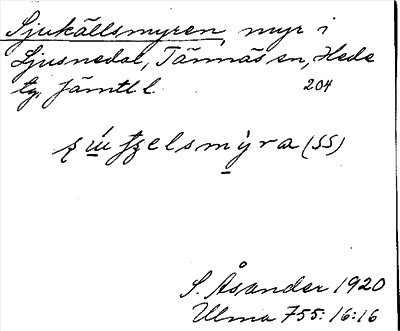 Sjukällsmyren, myr i
Ljusnedal, Tännäs sn, Hede
tg. Jämtl l 204
(SS)
S. Åsander 1920
Ulma 755:16:16